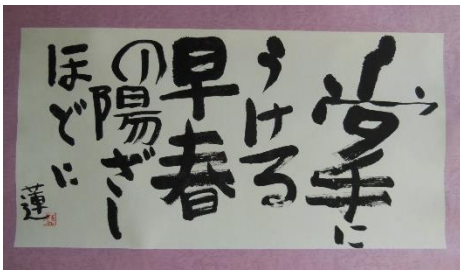 掌に
うける
早春
の陽ざし
ほどに
蓮